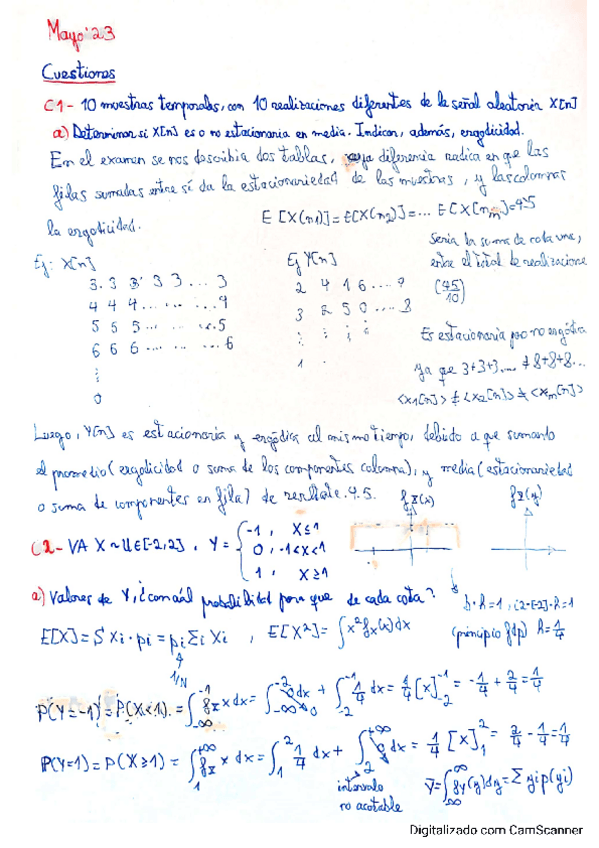 Mayo'23
Cuestiones
C1- 10 muestras temporales, con 10 realizaciones diferentes de la señal aleatoria X[n]
a) Determinar si X[n] es o no estacionaria en media. Indicar, además, ergodicidad.
En el examen se nos describia dos tablas, cuya diferencia radica en que las
filas sumadas entre sí da la estacionariedad de las muestras, y las columnas
la ergodicidad.
E[X(n1)]=E[X(n2)]=... E[X[nm]=4.5
Sería la suma de cada una,
entre el total de realizaciones
(45/10)
Ej: X[n]
3. 3 3 3 3 ... 3
4 4 4 ... ... 9
5 5 5 ... ... 5
6 6 6 ... ... 6
⋮
0
Ej Y[n]
2 4 1 6 ... 9
3 2 5 0 ... 8
⋮ ⋮ ⋮ ⋮
1 .
Es estacionaria pero no ergódica
ya que 3+3+3... ≠ 8+8+8...
<x1[n]> ≠ <x2[n]> ≠ <xm[n]>
Luego, Y[n] es estacionaria y ergódica al mismo tiempo, debido a que sumando
el promedio (ergodicidad o suma de los componentes columna), y media (estacionariedad
o suma de componentes en fila) da resultado 4.5.
fx(x) fx(y)
C2- VA X ~ U∈[-2,2], Y = { -1, X≤1
0, -1<X<1
1, X≥1
a) Valores de Y, ¿con cuál probabilidad para que de cada cota?
b·h=1, (2-[-2])·h=1
(principio fdp) h=1/4
E[X]=S Xi·pi = pi Σi Xi , E[X²]= ∫x² fx(x)dx
1/N
P(Y=-1) = P(X<1) = ∫_{-∞}^{-1} fx x dx = ∫_{-∞}^{-2} 0 dx + ∫_{-2}^{-1} 1/4 dx = 1/4 [x]_{-2}^{-1} = -1/4 + 2/4 = 1/4
P(Y=1) = P(X≥1) = ∫_{1}^{+∞} fx x dx = ∫_{1}^{2} 1/4 dx + ∫_{2}^{+∞} 0 dx = 1/4 [x]_{1}^{2} = 2/4 - 1/4 = 1/4
intervalo
no acotable
Ȳ = ∫_{-∞}^{∞} fy(y)dy = Σ yi p(yi)
Digitalizado com CamScanner